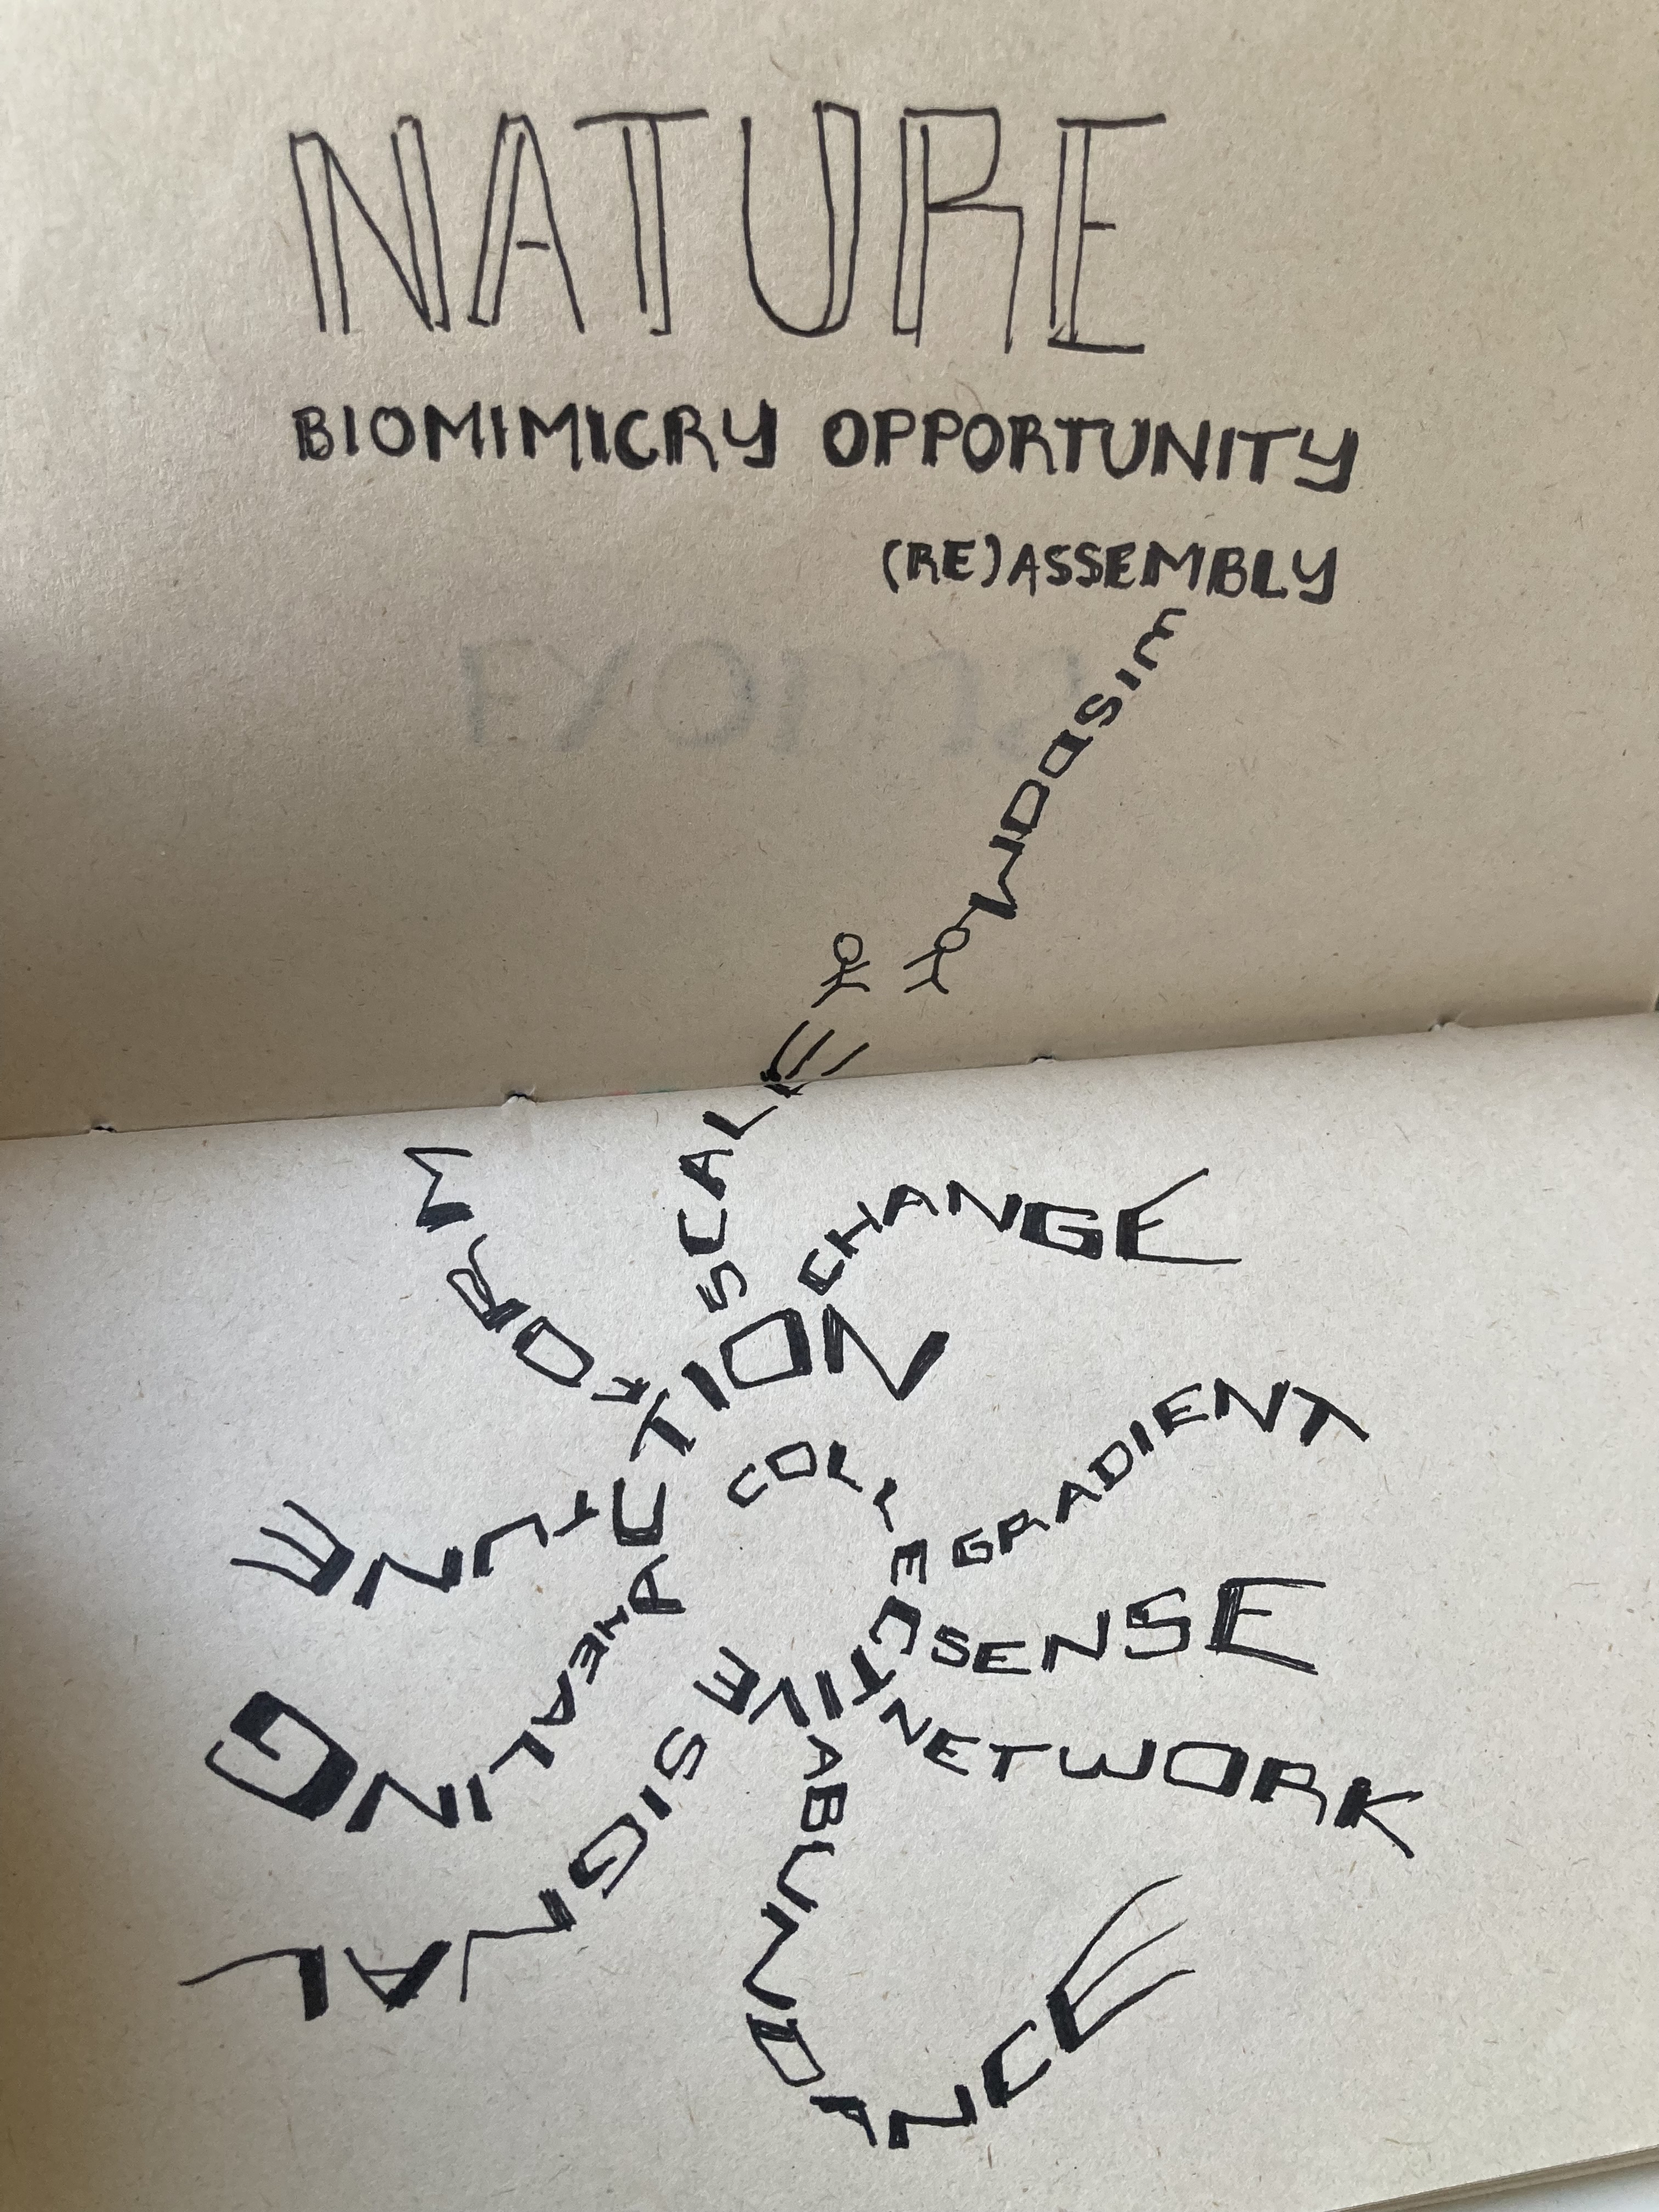 NATURE
BIOMIMICRY OPPORTUNITY
(RE)ASSEMBLY
WISDOM
SCALE
FORM
CHANGE
ACTION
COLLECTIVE
GRADIENT
TUNE
SENSE
HEALING
NETWORK
SIGNAL
ABUNDANCE